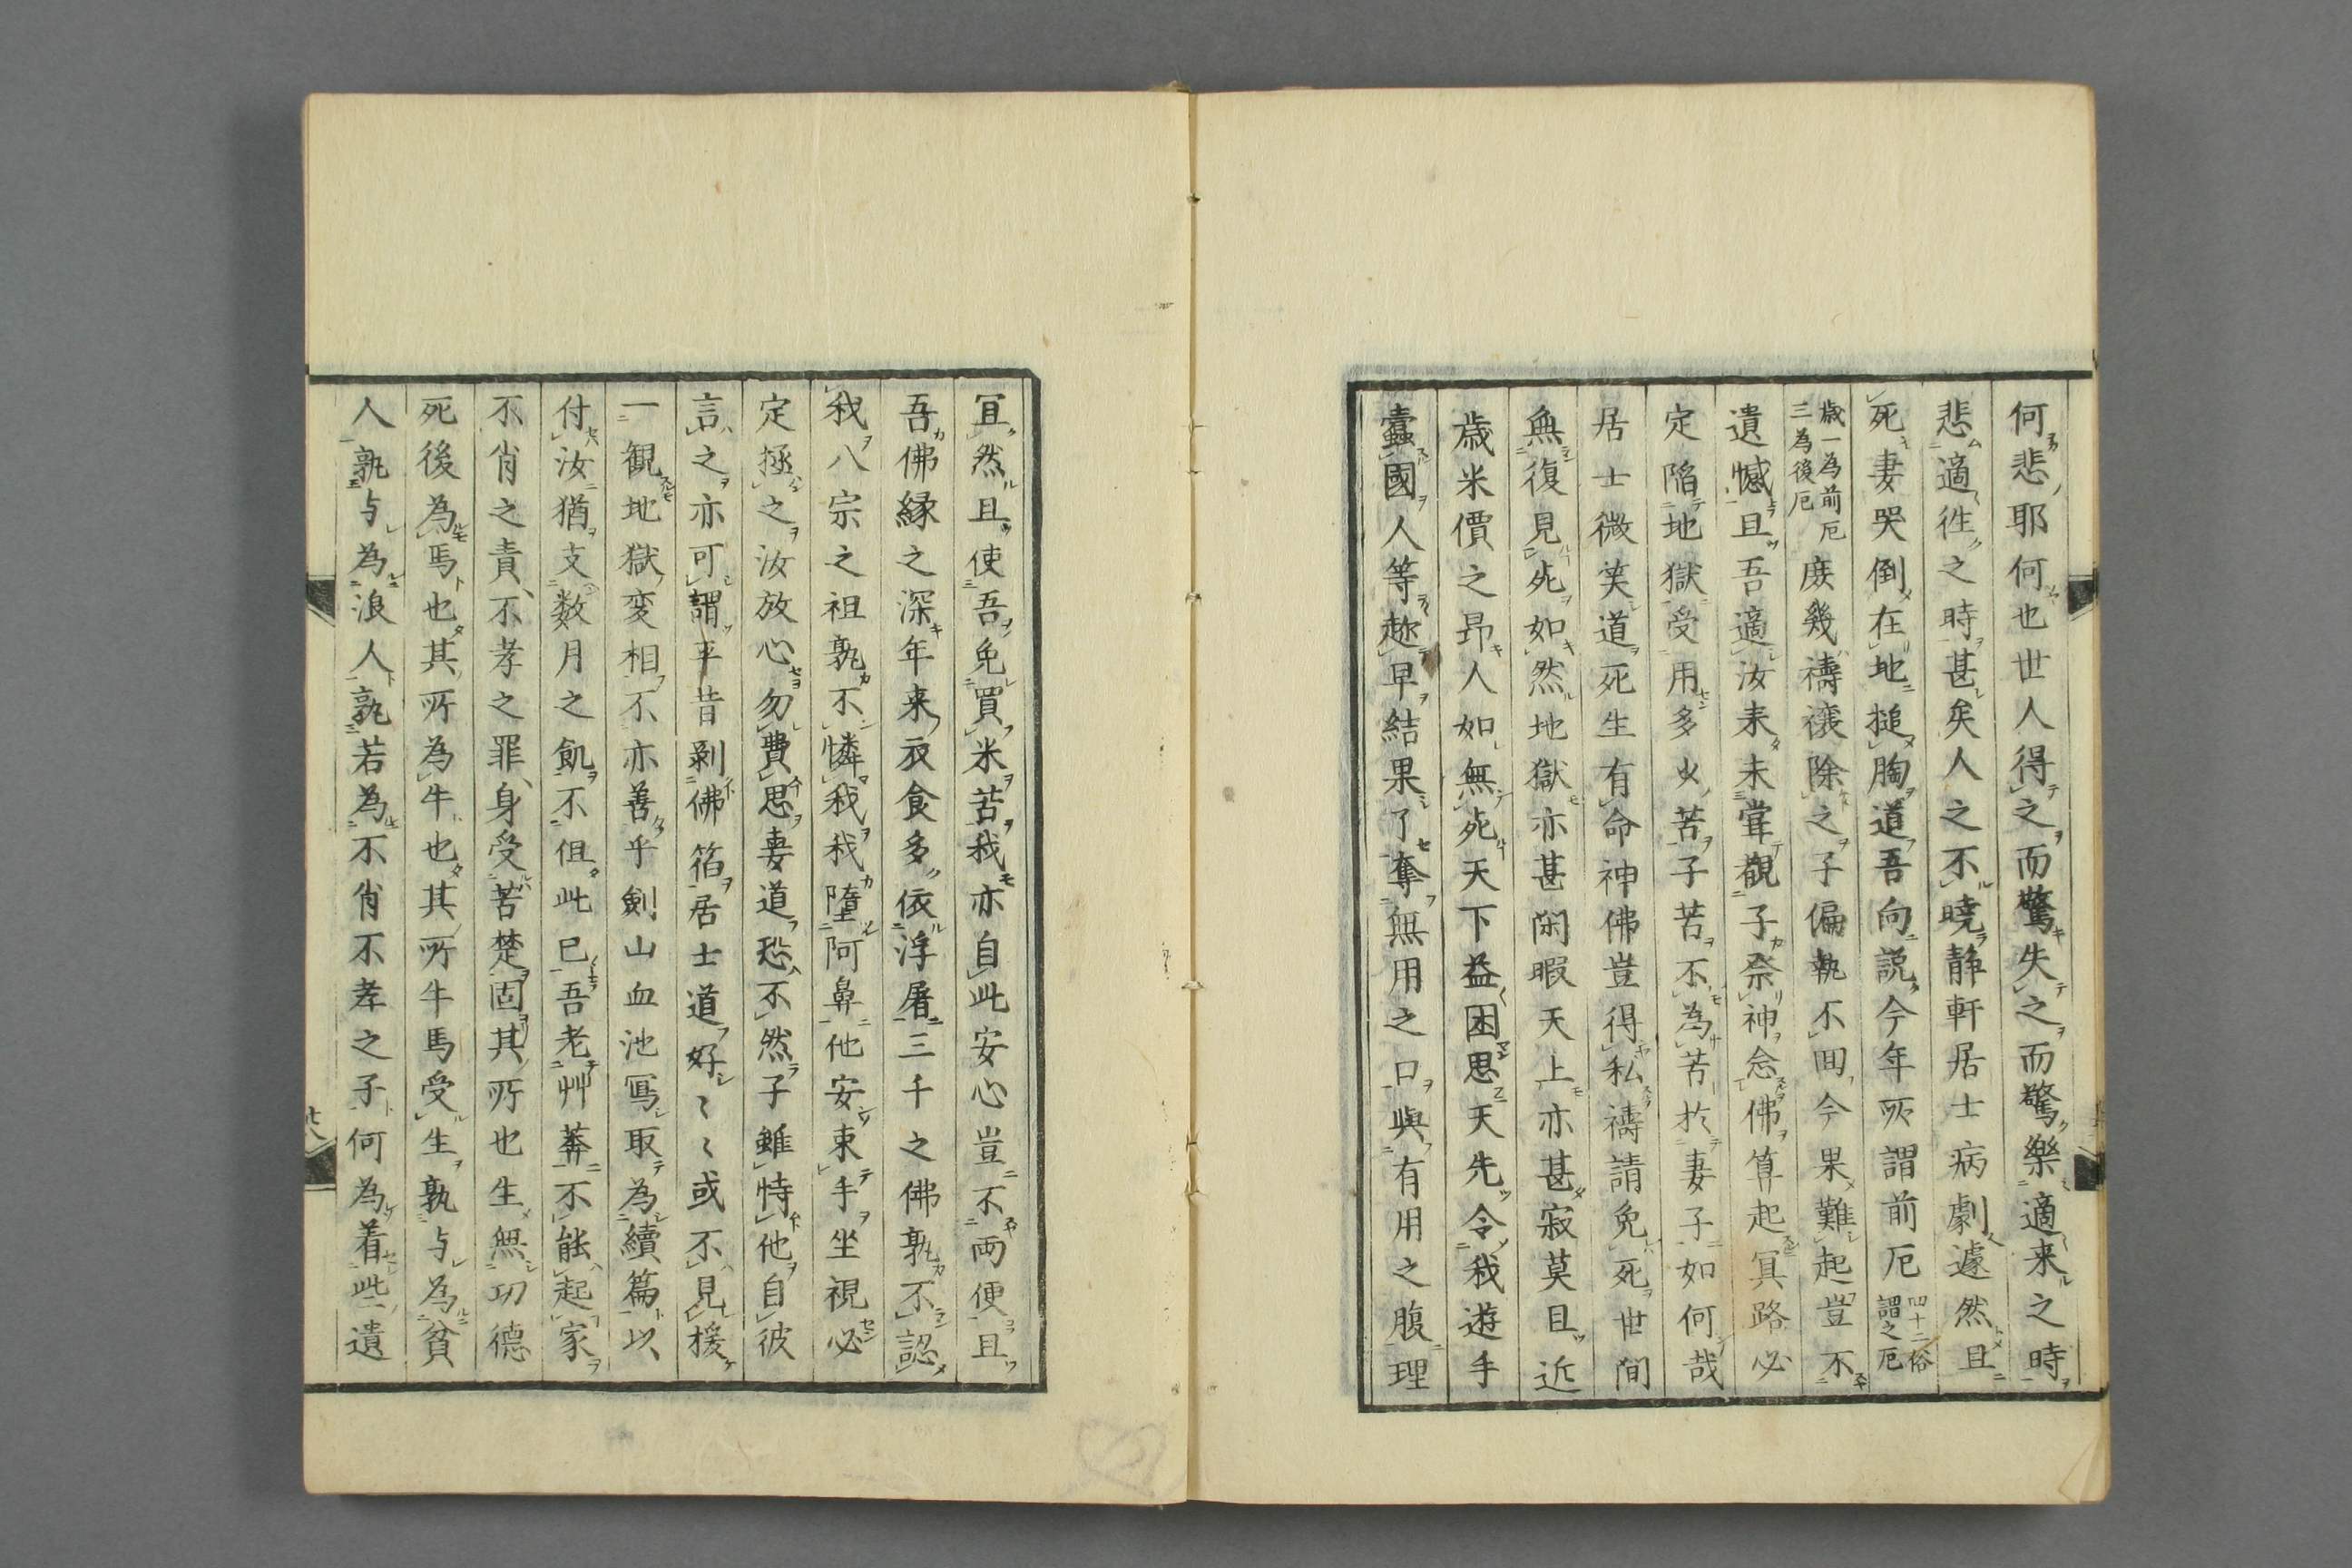 何悲耶何也世人得之而驚失之而驚樂適来之時
悲適徃之時甚矣人之不曉静軒居士病劇遽然且
死妻哭倒在地搥胸道吾向説今年所謂前厄四十二俗謂之厄
歳一為前厄三為後厄庻幾禱禳除之子偏執不囬今果難起豈不
遺憾且吾適汝来未甞覩子祭神念佛算起冥路必
定陷地獄受用多少苦子苦不為苦於妻子如何哉
居士微笑道死生有命神佛豈得私禱請免死世間
無復見死如然地獄亦甚閑暇天上亦甚寂莫且近
歳米價之昂人如無死天下益困思天先令我遊手
蠹國人等趂早結果了奪無用之口與有用之腹理
冝然且使吾免買米苦我亦自此安心豈不兩便且
吾佛縁之深年来衣食多依浮屠三千之佛孰不認
我八宗之祖孰不憐我我墮阿鼻他安束手坐視必
定拯之汝放心勿費思妻道恐不然子雖恃他自彼
言之亦可謂平昔剥佛䈄居士道好〻〻或不見援
一觀地獄変相不亦善乎劍山血池冩取為續篇以
付汝猶支数月之飢不但此已吾老艸莽不能起家
不肖之責不孝之罪身受苦楚固其所也生無功德
死後為馬也其所為牛也其所牛馬受生孰与為貧
人孰与為浪人孰若為不肖不孝之子何為着些遺